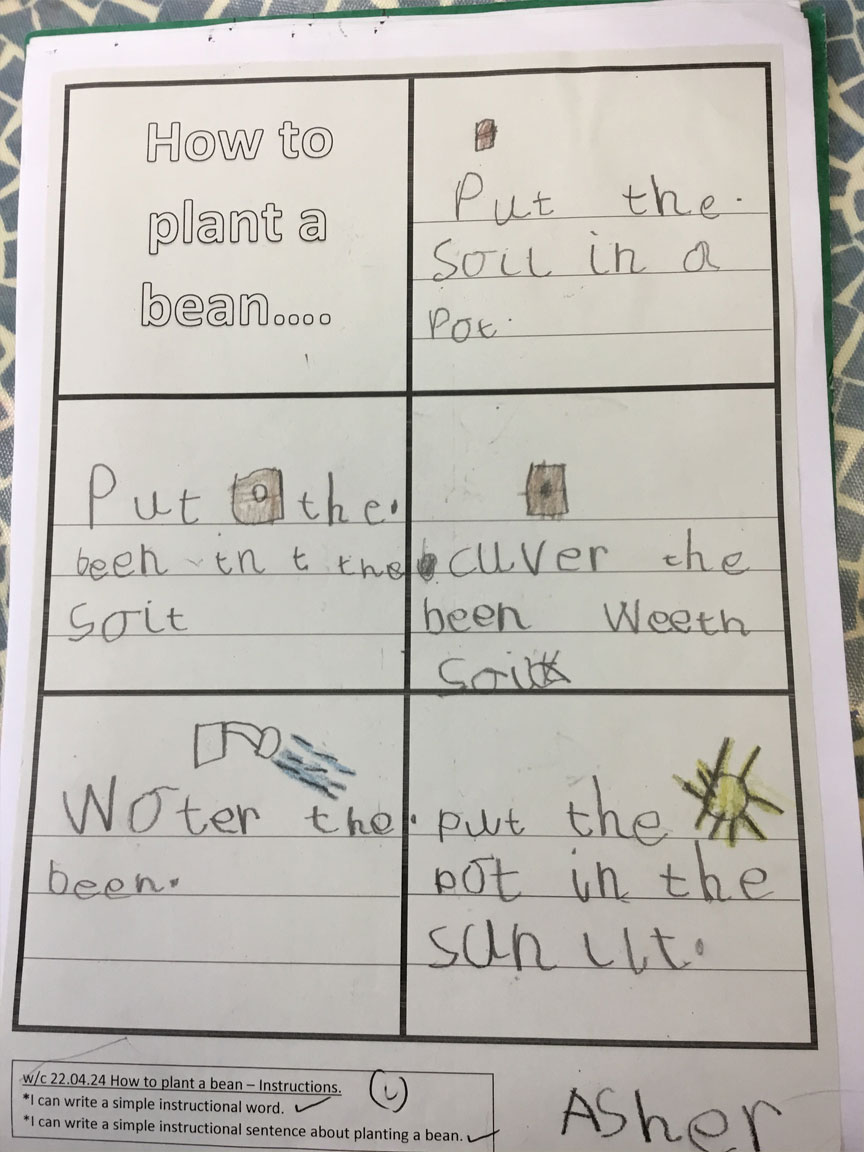 How to
plant a
bean....
Put the.
Soil in a
Pot.
Put the.
been in t the
Soit
cuver the
been Weeth
Soil
Woter the.
been.
put the
pot in the
sun lit.
w/c 22.04.24 How to plant a bean – Instructions.
*I can write a simple instructional word. ✓
*I can write a simple instructional sentence about planting a bean. ✓
ASher